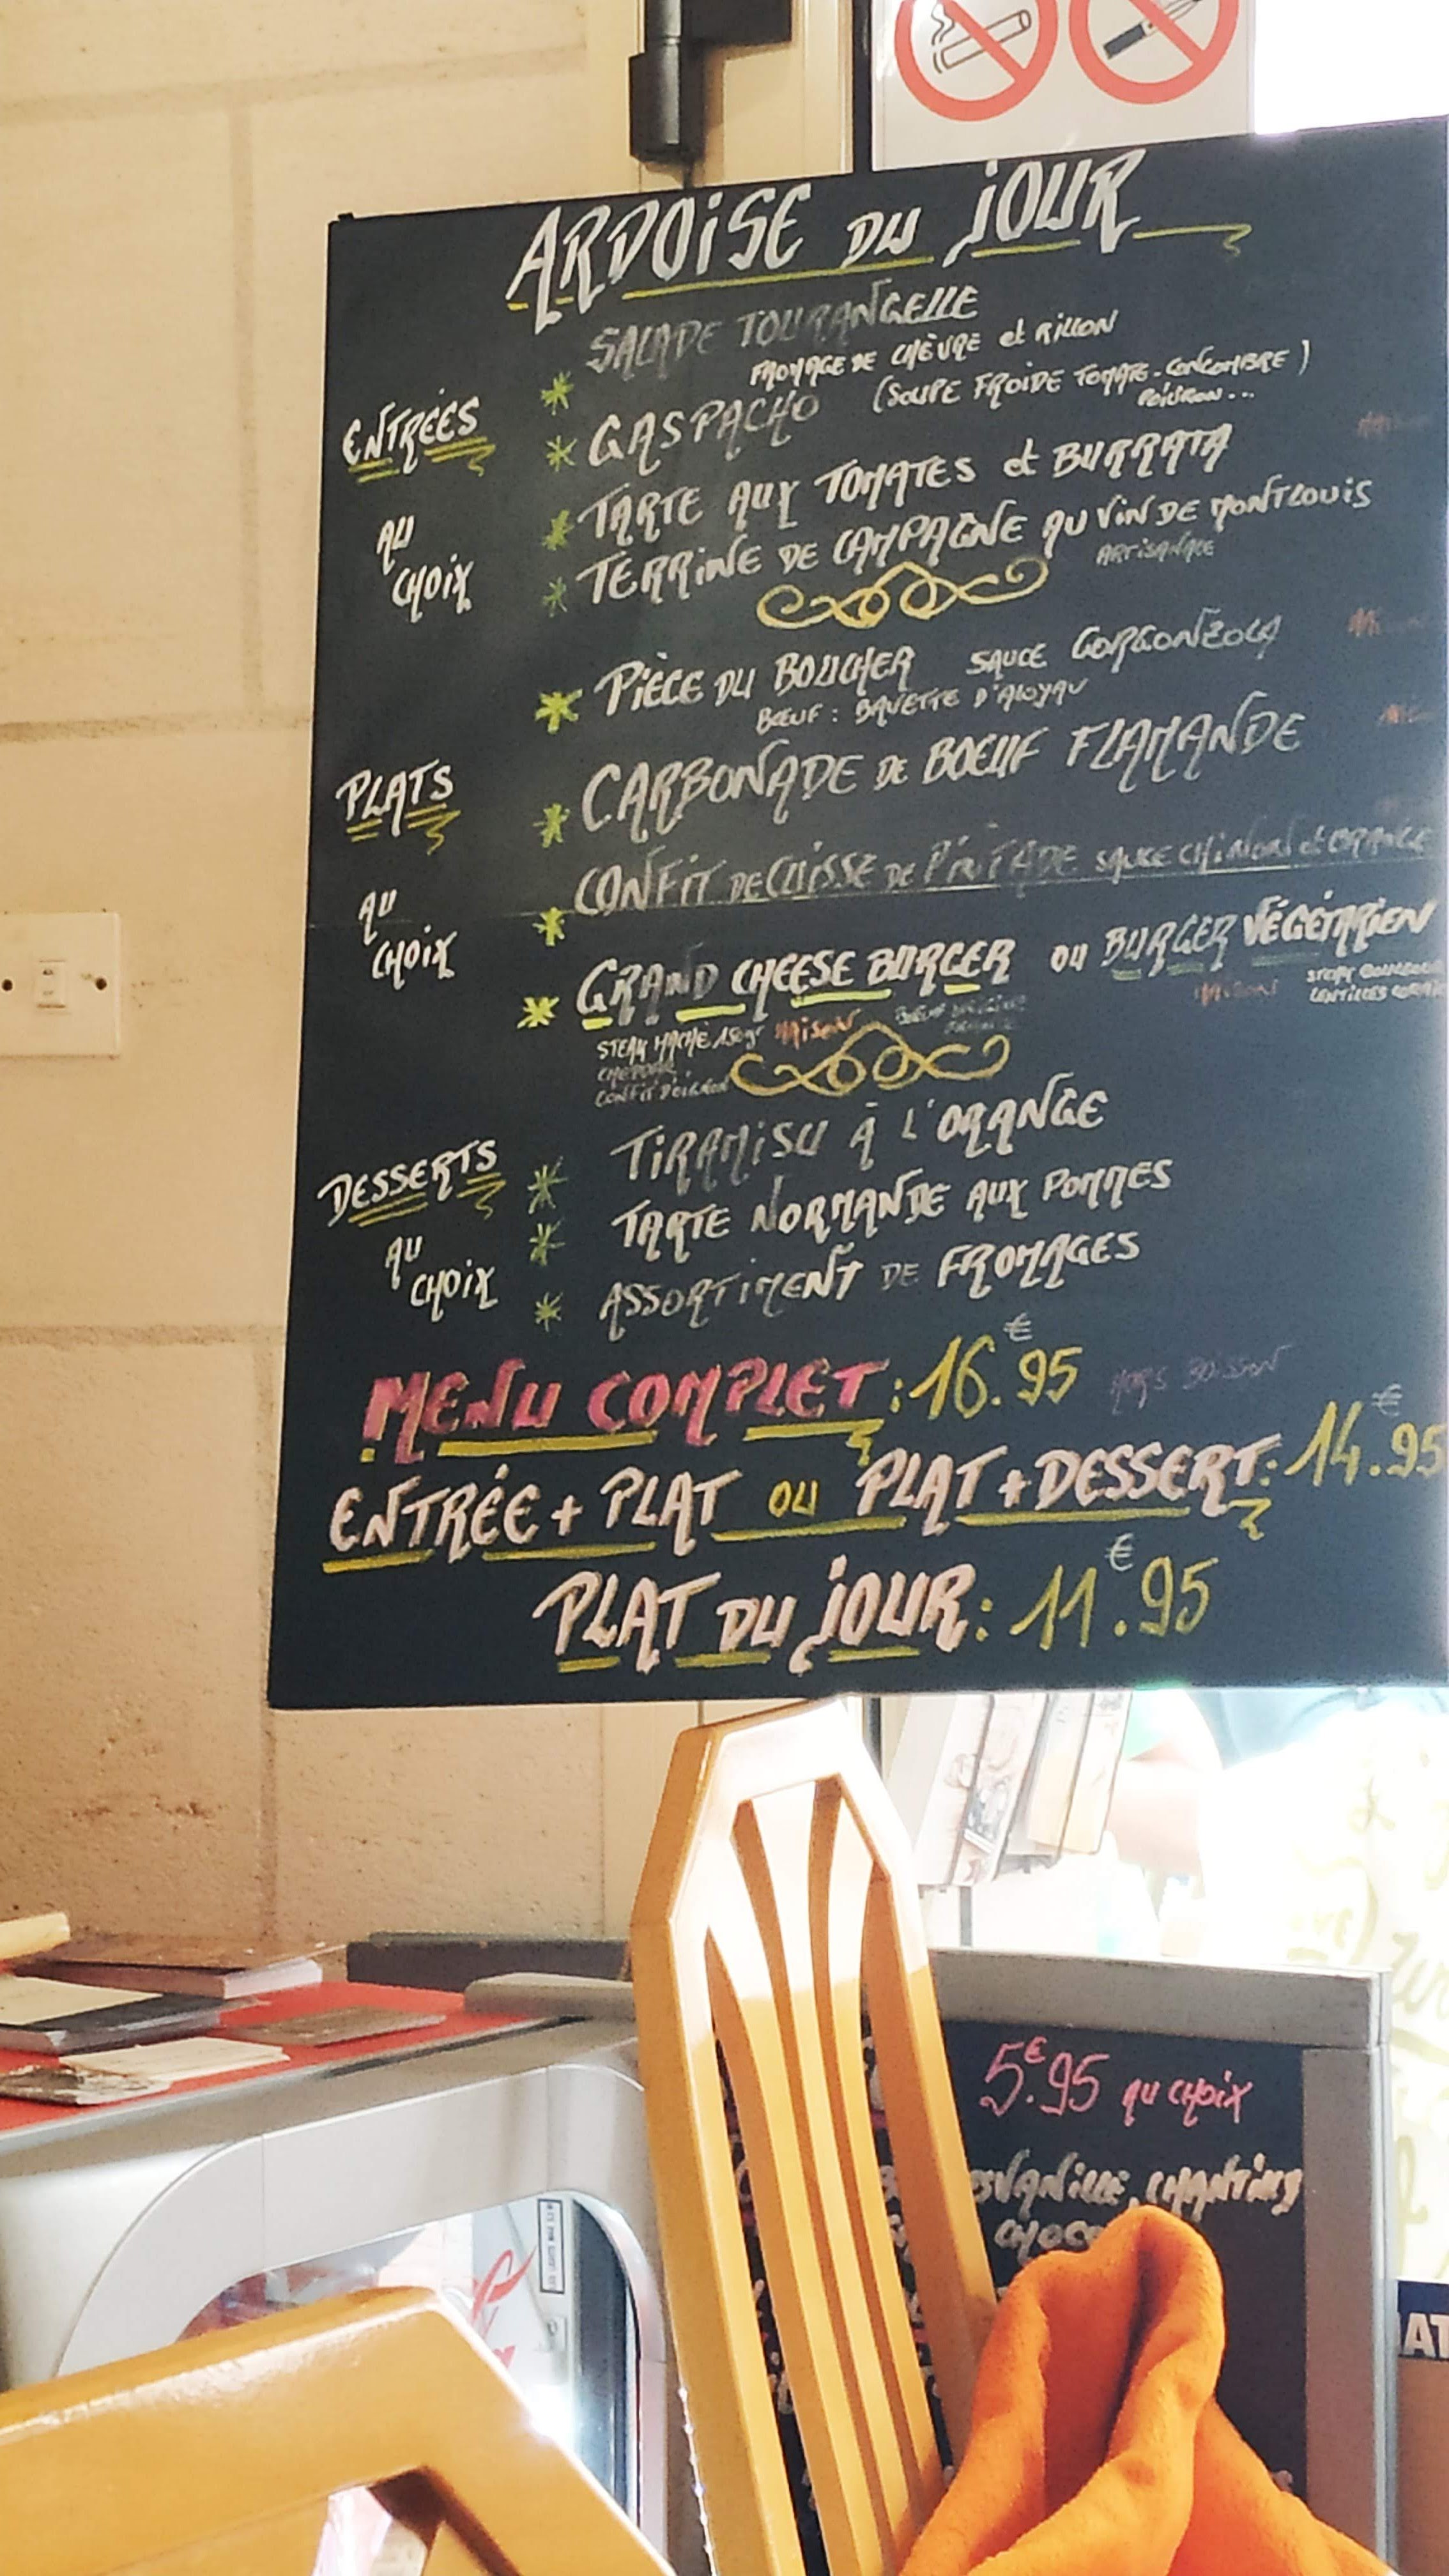 ARDOISE DU JOUR
SALADE TOURANGELLE
FROMAGE DE CHÈVRE et RILLON
ENTRÉES
AU
CHOIX
* GASPACHO (SOUPE FROIDE TOMATE-CONCOMBRE)
POIVRON...
* TARTE AUX TOMATES et BURRATA
* TERRINE DE CAMPAGNE AU VIN DE MONTLOUIS
ARTISANALE
* PIÈCE DU BOUCHER SAUCE GORGONZOLA
BŒUF : BAVETTE D'ALOYAU
PLATS
AU
CHOIX
* CARBONADE DE BOEUF FLAMANDE
* CONFIT DE CUISSE DE PINTADE SAUCE CHINON et ORANGE
* GRAND CHEESE BURGER ou BURGER VÉGÉTARIEN
STEAK HACHÉ 150gr MAISON
CHEDDAR,
CONFIT D'OIGNON
MAISON
LENTILLES
DESSERTS
AU
CHOIX
* TIRAMISU À L'ORANGE
* TARTE NORMANDE AUX POMMES
* ASSORTIMENT DE FROMAGES
MENU COMPLET : 16.€95 HORS BOISSON
ENTRÉE + PLAT OU PLAT + DESSERT : 14.€95
PLAT DU JOUR : 11.€95
5.€95 AU CHOIX
VANILLE, CHANTILLY
CHOCO
AT